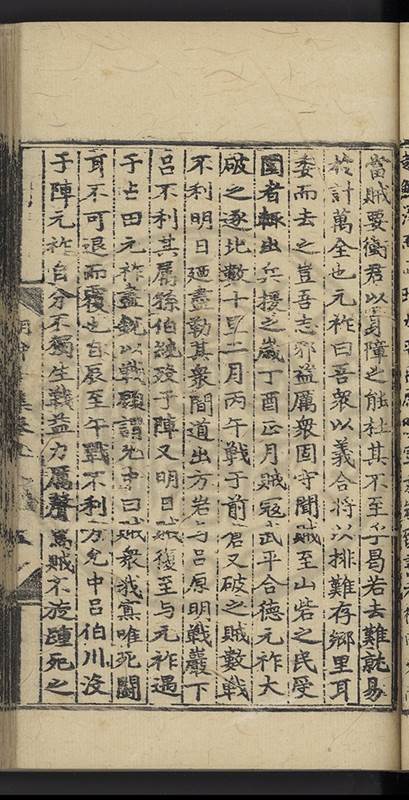 當賊要衝君以身障之能杜其不至乎曷若去難就易
於計萬全也元祚曰吾衆以義合將以排難存郷里耳
委而去之豈吾志邪益厲衆固守聞賊至山砦之民受
圍者輒出兵援之歲丁酉正月賊寇武平合德元祚大
破之逐北數十里二月丙午戰于前倉又破之賊數戰
不利明日廼盡勒其衆間道出方岩与呂原明戰巖下
呂不利其屬孫伯純歿于陣又明日賊復至与元祚遇
于占田元祚盡銳以戰顧謂允中曰賊衆我寡唯死鬭
耳不可退而覆也自辰至午戰不利方允中呂伯川沒
于陣元祚自分不獨生戰益力厲聲罵賊不旋踵死之